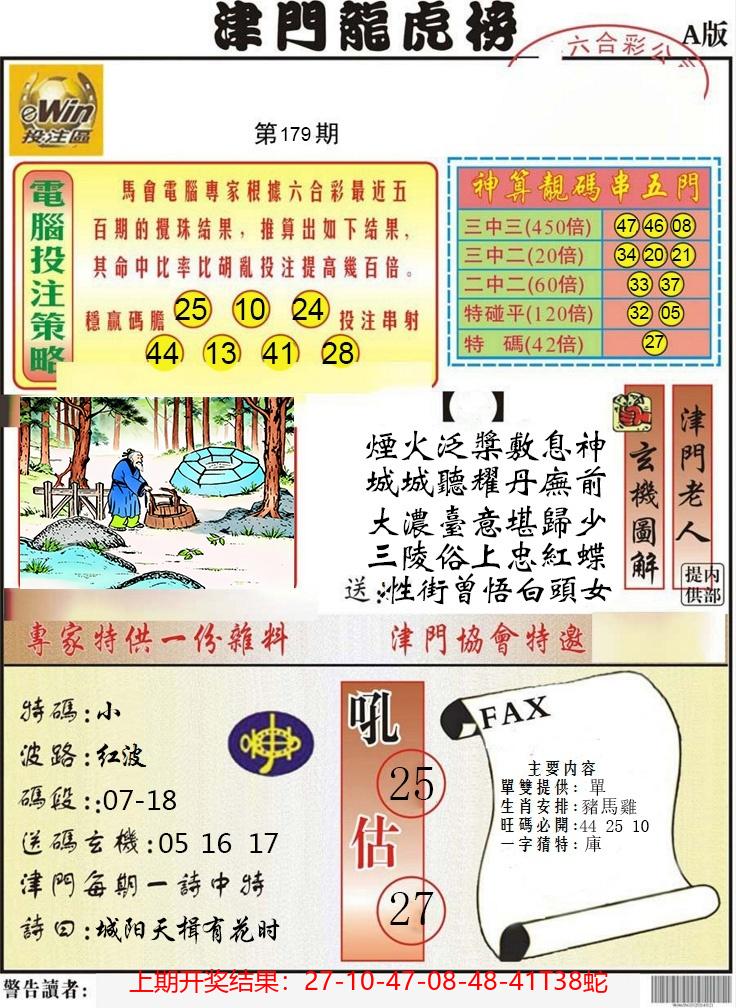 津門龍虎榜
A版
六合彩公
eWin
投注區
第179期
電腦投注策略
馬會電腦專家根據六合彩最近五
百期的攪珠结果，推算出如下结果，
其命中比率比胡亂投注提高幾百倍。
穩贏碼膽 25 10 24 投注串射
44 13 41 28
神算靚碼串五門
三中三(450倍) 47 46 08
三中二(20倍) 34 20 21
二中二(60倍) 33 37
特碰平(120倍) 32 05
特 碼(42倍) 27
【 】
煙火泛槳敷息神
城城聽耀丹廡前
大濃臺意堪歸少
三陵俗上忠紅蝶
送:性街曾悟白頭女
玄機圖解
津門老人
内部
提供
專家特供一份雜料
津門協會特邀
特碼:小
波路:红波
碼段::07-18
送碼玄機:05 16 17
津門每期一詩中特
詩曰:城阳天楫有花时
吼
25
估
27
FAX
主要内容
單雙提供: 單
生肖安排:豬馬雞
旺码必開:44 25 10
一字猜特: 庫
警告讀者:
上期开奖结果：27-10-47-08-48-41T38蛇